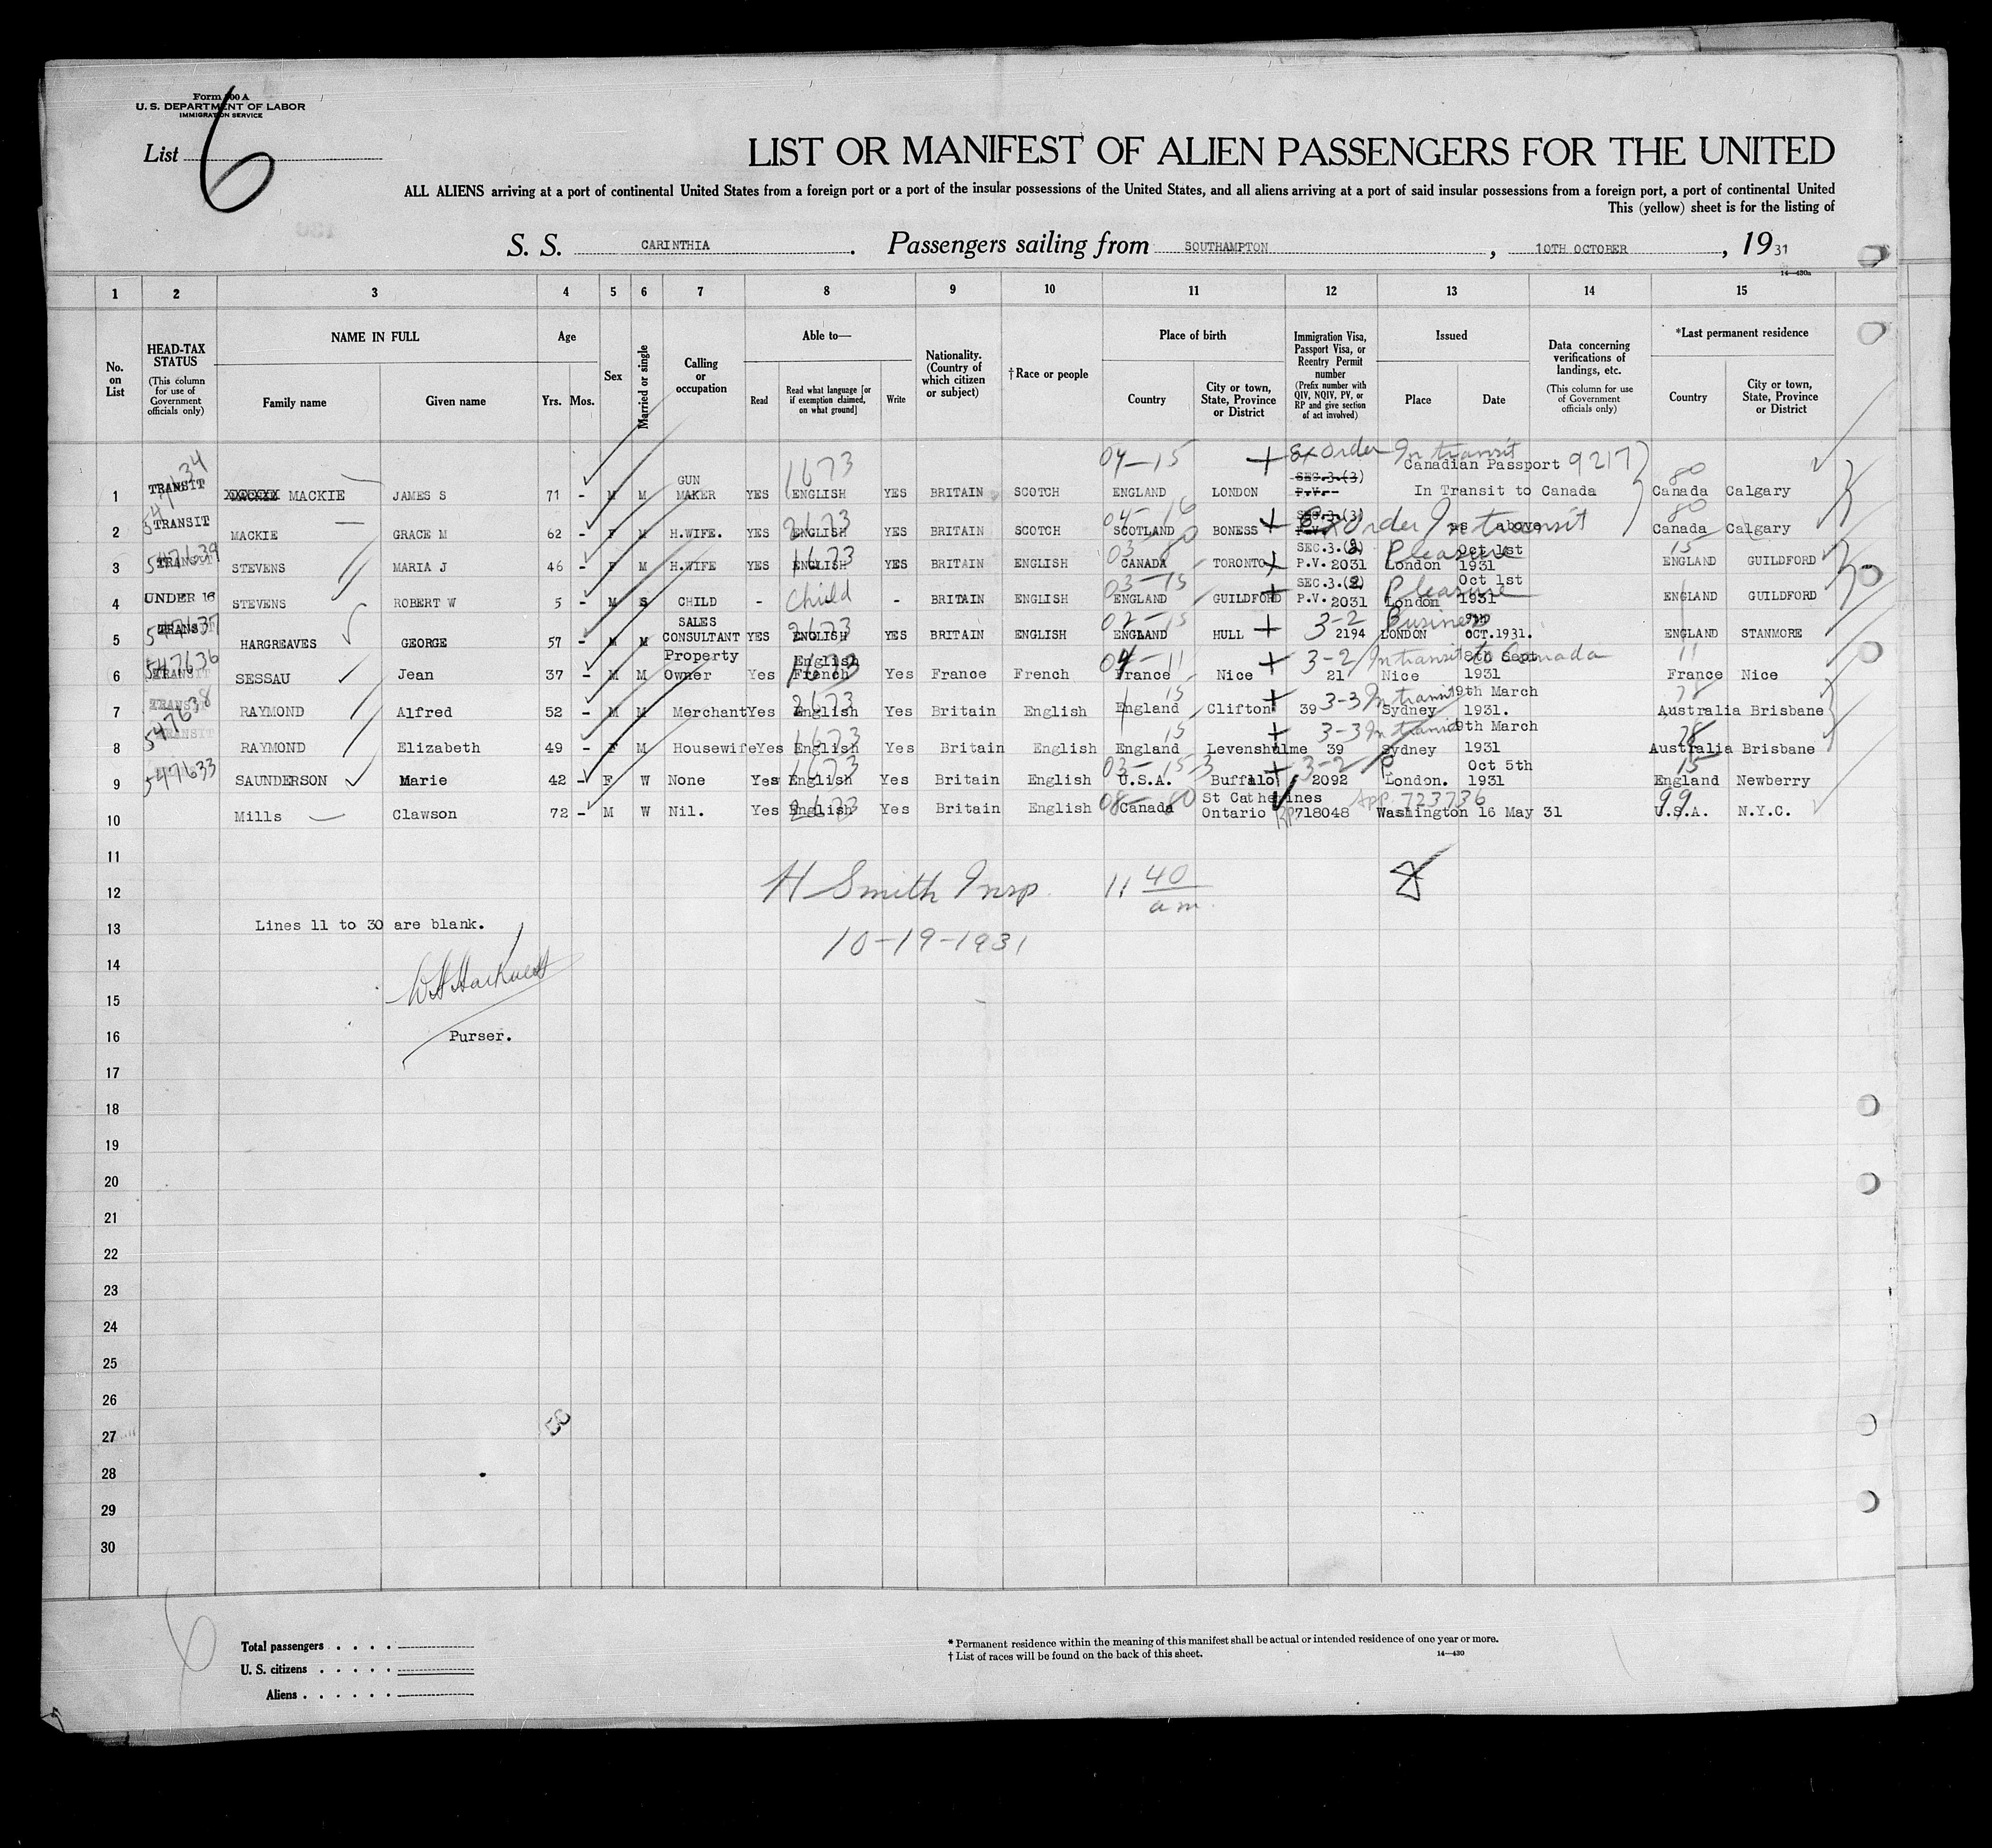 Form 500 A
U. S. DEPARTMENT OF LABOR
IMMIGRATION SERVICE
List 6
LIST OR MANIFEST OF ALIEN PASSENGERS FOR THE UNITED
ALL ALIENS arriving at a port of continental United States from a foreign port or a port of the insular possessions of the United States, and all aliens arriving at a port of said insular possessions from a foreign port, a port of continental United
This (yellow) sheet is for the listing of
S. S. CARINTHIA. Passengers sailing from SOUTHAMPTON, 10TH OCTOBER, 1931
14—430a
1 2 3 4 5 6 7 8 9 10 11 12 13 14 15
No. on List
HEAD-TAX STATUS (This column for use of Government officials only)
NAME IN FULL
Family name Given name
Age
Yrs. Mos.
Sex
Married or single
Calling or occupation
Able to—
Read
Read what language [or if exemption claimed, on what ground]
Write
Nationality. (Country of which citizen or subject)
†Race or people
Place of birth
Country
City or town, State, Province or District
Immigration Visa, Passport Visa, or Reentry Permit number (Prefix number with QIV, NQIV, PV, or RP and give section of act involved)
Issued
Place Date
Data concerning verifications of landings, etc. (This column for use of Government officials only)
*Last permanent residence
Country
City or town, State, Province or District
04-15 + Ex Order In transit
1673 Canadian Passport 9217 80
1 TRANSIT MACKIE JAMES S 71 - M M GUN MAKER YES ENGLISH YES BRITAIN SCOTCH ENGLAND LONDON SEC.3.(3) P.V.-- In Transit to Canada Canada Calgary
2673 04-16 80
2 TRANSIT MACKIE GRACE M 62 - F M H.WIFE. YES ENGLISH YES BRITAIN SCOTCH SCOTLAND BONESS + SEC.3.(3) Ex Order In transit as above Canada Calgary
547639 1673 03-80 Pleasure 15
3 TRANSIT STEVENS MARIA J 46 - F M H.WIFE YES ENGLISH YES BRITAIN ENGLISH CANADA TORONTO + SEC.3.(2) P.V. 2031 London Oct 1st 1931 ENGLAND GUILDFORD
03-15 Pleasure
4 UNDER 16 STEVENS ROBERT W 5 - M S CHILD - Child - BRITAIN ENGLISH ENGLAND GUILDFORD + SEC.3.(2) P.V. 2031 London Oct 1st 1931 ENGLAND GUILDFORD
547637 2673 02-15 3-2 Business
5 TRANSIT HARGREAVES GEORGE 57 - M M SALES CONSULTANT YES ENGLISH YES BRITAIN ENGLISH ENGLAND HULL + 2194 LONDON OCT.1931. ENGLAND STANMORE
547636 1673 04-11 3-2 In transit to Canada 11
6 TRANSIT SESSAU Jean 37 - M M Property Owner Yes English French Yes France French France Nice + 21 Nice 8th Sept 1931 France Nice
547638 2673 15 3-3 In transit 78
7 TRANSIT RAYMOND Alfred 52 - M M Merchant Yes English Yes Britain English England Clifton + 39 Sydney 9th March 1931. Australia Brisbane
1673 15 3-3 In transit 78
8 TRANSIT RAYMOND Elizabeth 49 - F M Housewife Yes English Yes Britain English England Levenshulme + 39 Sydney 9th March 1931 Australia Brisbane
547633 1673 03-15-3 3-2 P 15
9 SAUNDERSON Marie 42 - F W None Yes English Yes Britain English U.S.A. Buffalo + 2092 London. Oct 5th 1931 England Newberry
2673 08-80 App. 723736 99
10 Mills Clawson 72 - M W Nil. Yes English Yes Britain English Canada St Catherines Ontario RP 718048 Washington 16 May 31 U.S.A. N.Y.C.
11
12 H Smith Insp. 11 40 am.
13 Lines 11 to 30 are blank. 10-19-1931
14
15
16 Purser.
17
18
19
20
21
22
23
24
25
26
27
28
29
30
6
Total passengers
U. S. citizens
Aliens
* Permanent residence within the meaning of this manifest shall be actual or intended residence of one year or more.
† List of races will be found on the back of this sheet.
14—430